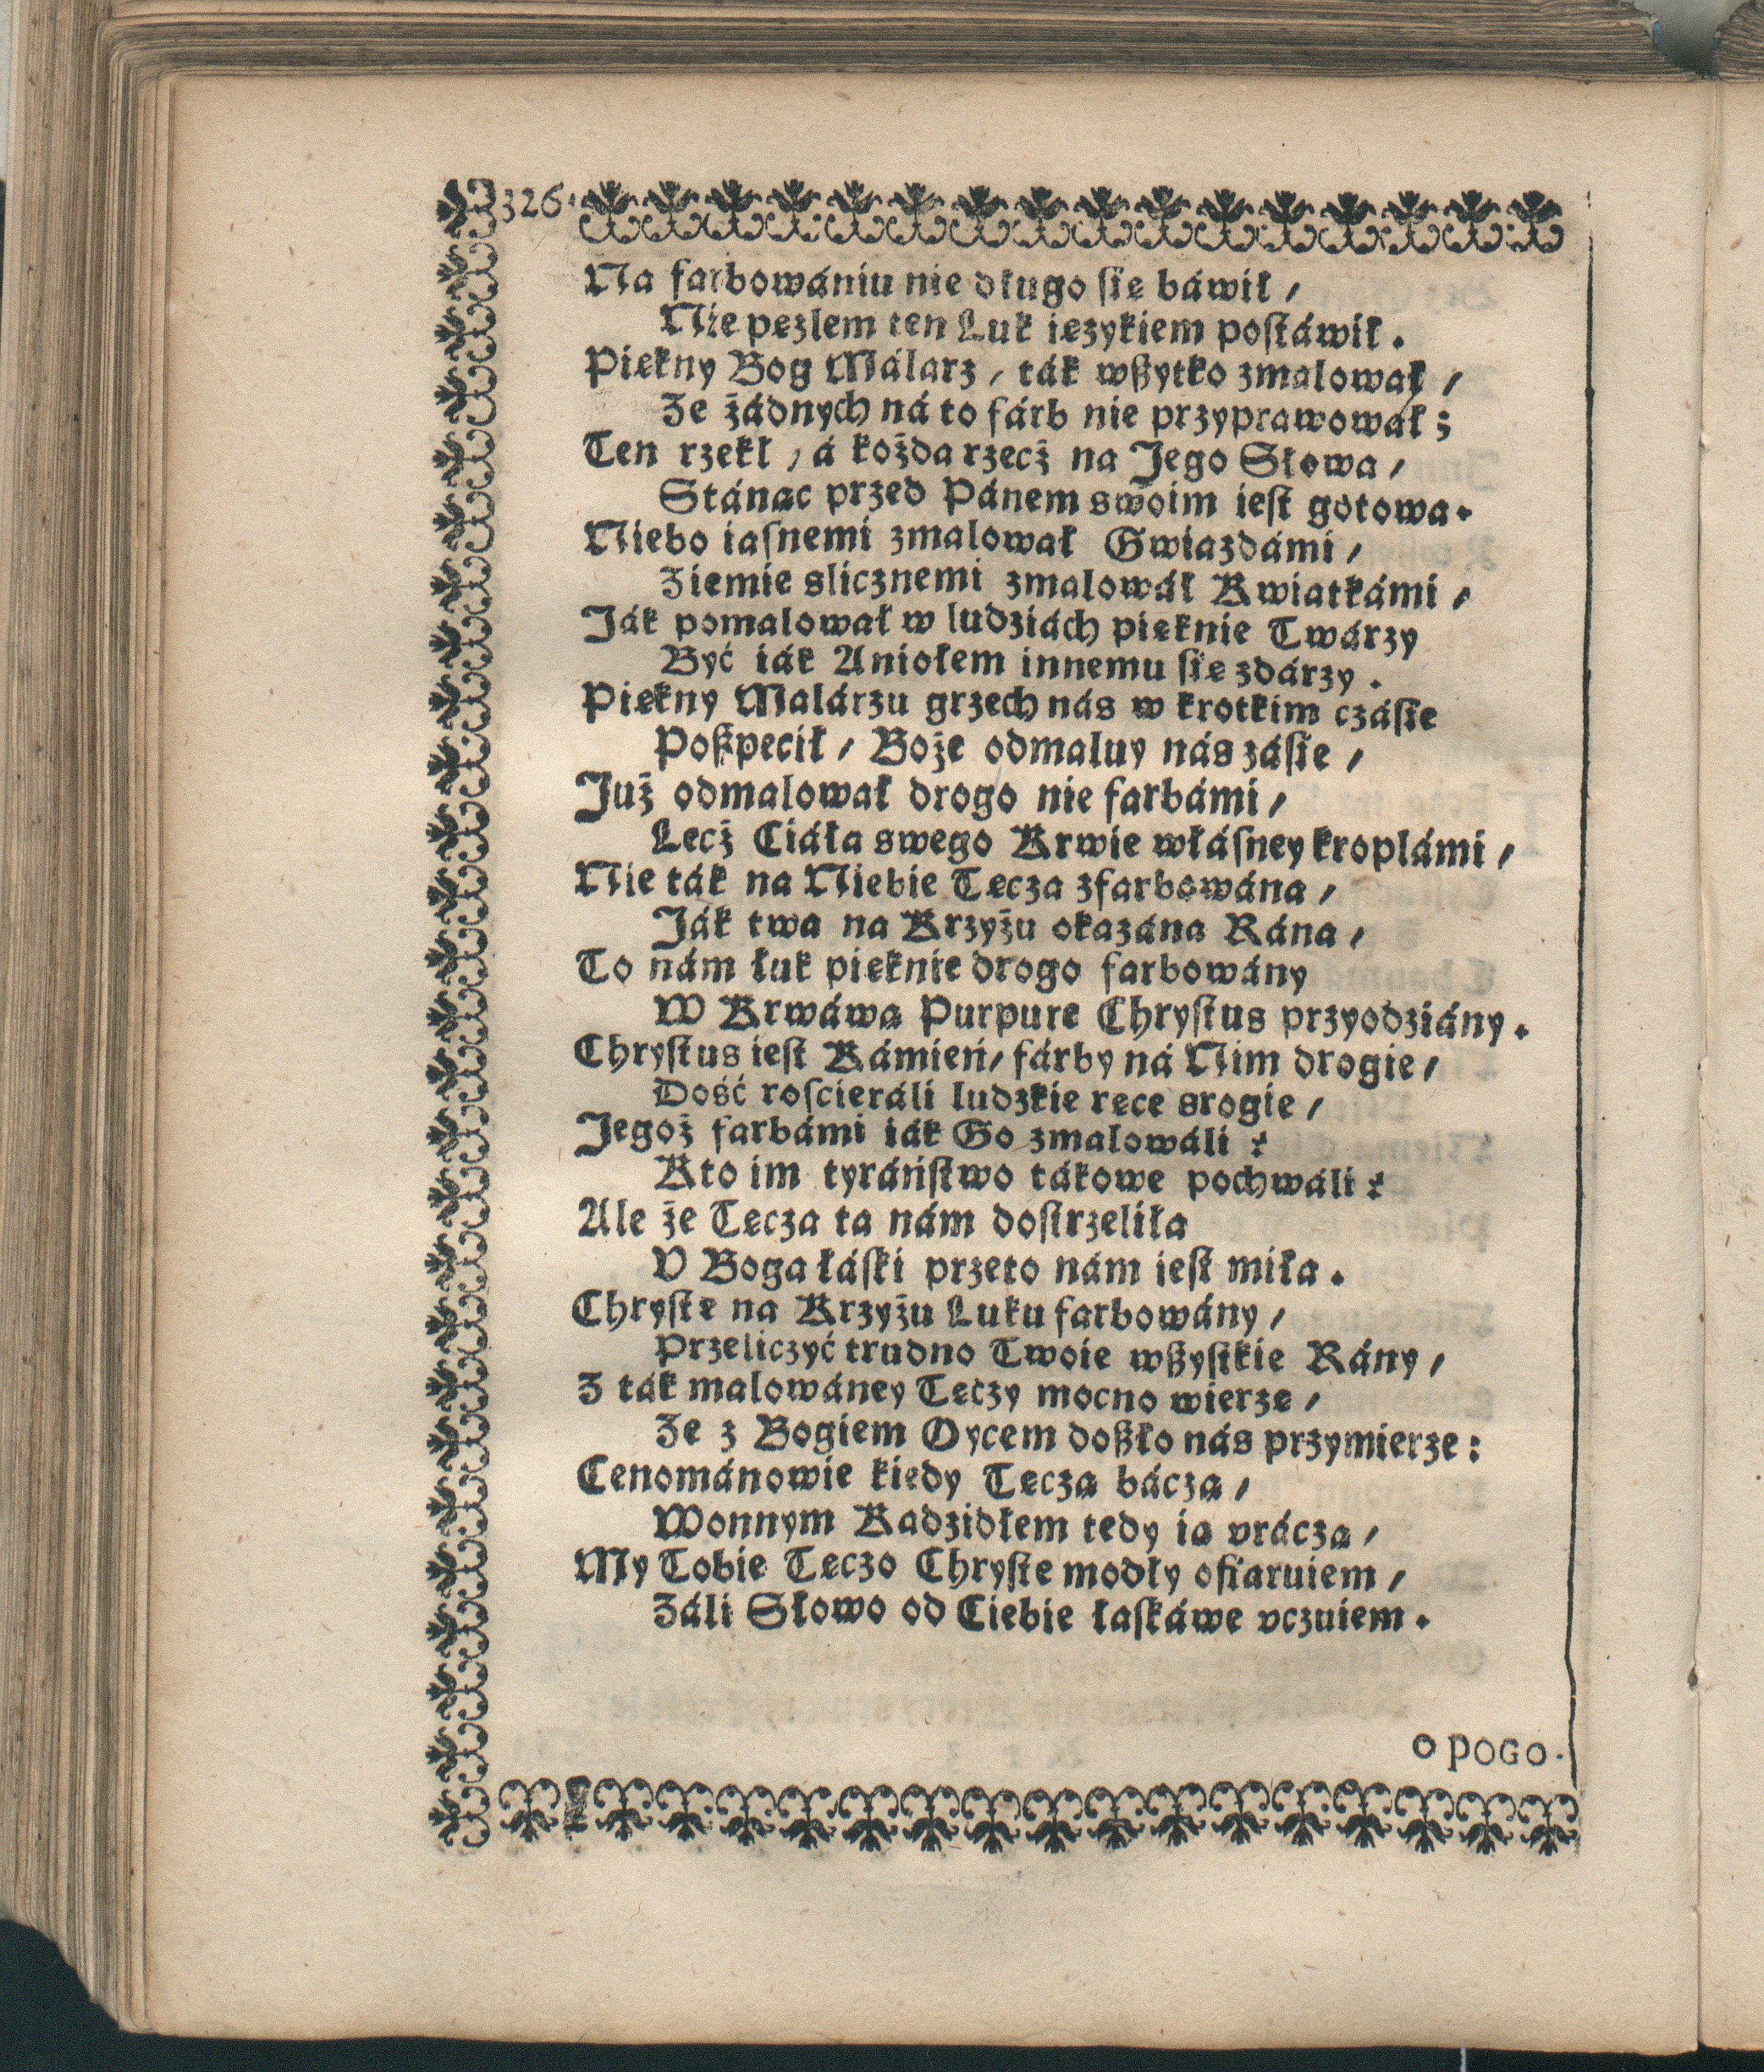 326.
Na farbowániu nie długo ſię báwił /
Niże pęzlem ten Luk ięzykiem poſtáwił.
Piękny Bog Málarz / ták wßytko zmalował /
Ze żádnych ná to fárb nie przyprawował;
Ten rzekł / á kożda rzecż na Jego Słowa /
Stánąc przed Pánem swoim ieſt gotowa.
Niebo iaſnemi zmalował Gwiazdámi /
Ziemię slicznemi zmalowáł Kwiatkámi /
Ják pomalował w ludziách pięknie Twárzy
Być iák Aniołem innemu ſię zdárzy.
Piękny Malárzu grzech nás w krotkim czáſie
Poßpecił / Boże odmaluy nás záſię /
Już odmalował drogo nie farbámi /
Lecż Ciáła swego Krwie włáſney kroplámi /
Nie ták na Niebie Tęcza zfarbowána /
Ják twa na Krzyżu okazána Rána /
To nám łuk pięknie drogo farbowány
W Krwáwą Purpurę Chryſtus przyodziány.
Chryſtus ieſt Kámień / fárby ná Nim drogie /
Dość roſcieráli ludzkie ręce srogie /
Jegoż farbámi iák Go zmalowáli?
Kto im tyráńſtwo tákowe pochwáli?
Ale że Tęcza ta nám doſtrzeliła
V Boga łáſki przeto nám ieſt miła.
Chryſte na Krzyżu Luku farbowány /
Przeliczyć trudno Twoie wßyſtkie Rány /
Z ták malowáney Tęczy mocno wierzę /
Ze z Bogiem Oycem doßło nás przymierze:
Cenománowie kiedy Tęczą báczą /
Wonnym Kadzidłem tedy ią vráczą /
My Tobie Tęczo Chryſte modły ofiaruiem /
Záli Słowo od Ciebie łaſkáwe vczuiem.
O POGO.